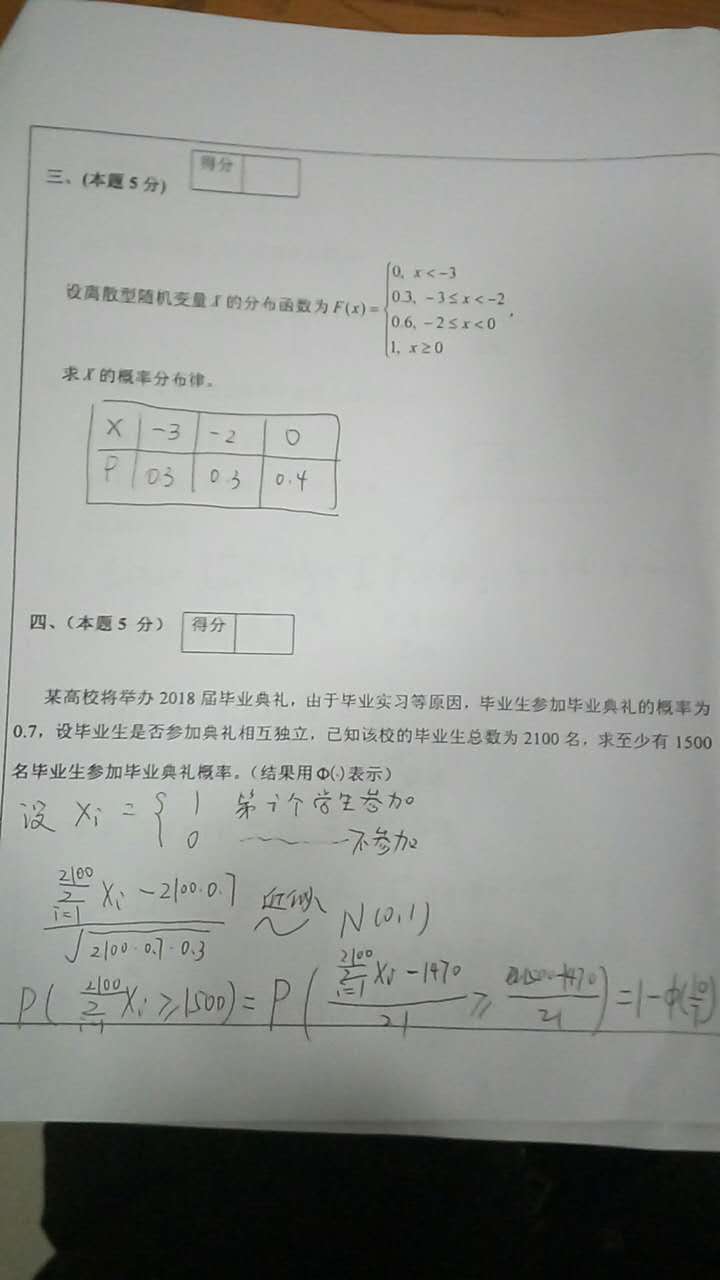 三、(本题 5 分)
得分
设离散型随机变量 X 的分布函数为 F(x)=
0, x<-3
0.3, -3≤x<-2
0.6, -2≤x<0
1, x≥0
,
求 X 的概率分布律。
X -3 -2 0
P 0.3 0.3 0.4
四、(本题 5 分)
得分
某高校将举办 2018 届毕业典礼，由于毕业实习等原因，毕业生参加毕业典礼的概率为
0.7，设毕业生是否参加典礼相互独立，已知该校的毕业生总数为 2100 名，求至少有 1500
名毕业生参加毕业典礼概率。(结果用 Φ(·) 表示)
设 Xi = { 1 第i个学生参加
0 ———不参加
(∑_{i=1}^{2100} Xi - 2100·0.7) / √(2100·0.7·0.3) 近似~ N(0,1)
P(∑_{i=1}^{2100} Xi ≥ 1500) = P((∑_{i=1}^{2100} Xi - 1470)/21 ≥ (1500-1470)/21) = 1-Φ(10/7)